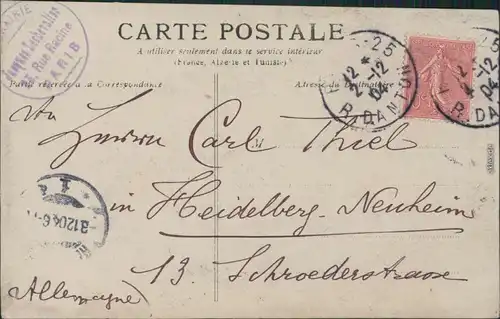 CARTE POSTALE
A utiliser seulement dans le service intérieur
(France, Algérie et Tunisie)
Partie réservée à la Correspondance
Adresse du Destinataire
Rue Racine
PARIS
25
12
2-12
04
R. DANTON
Herrn Carl Thiel
M
in Heidelberg-Neuheim
13. Schroederstrasse
(Allemagne)
1
31204.6-7